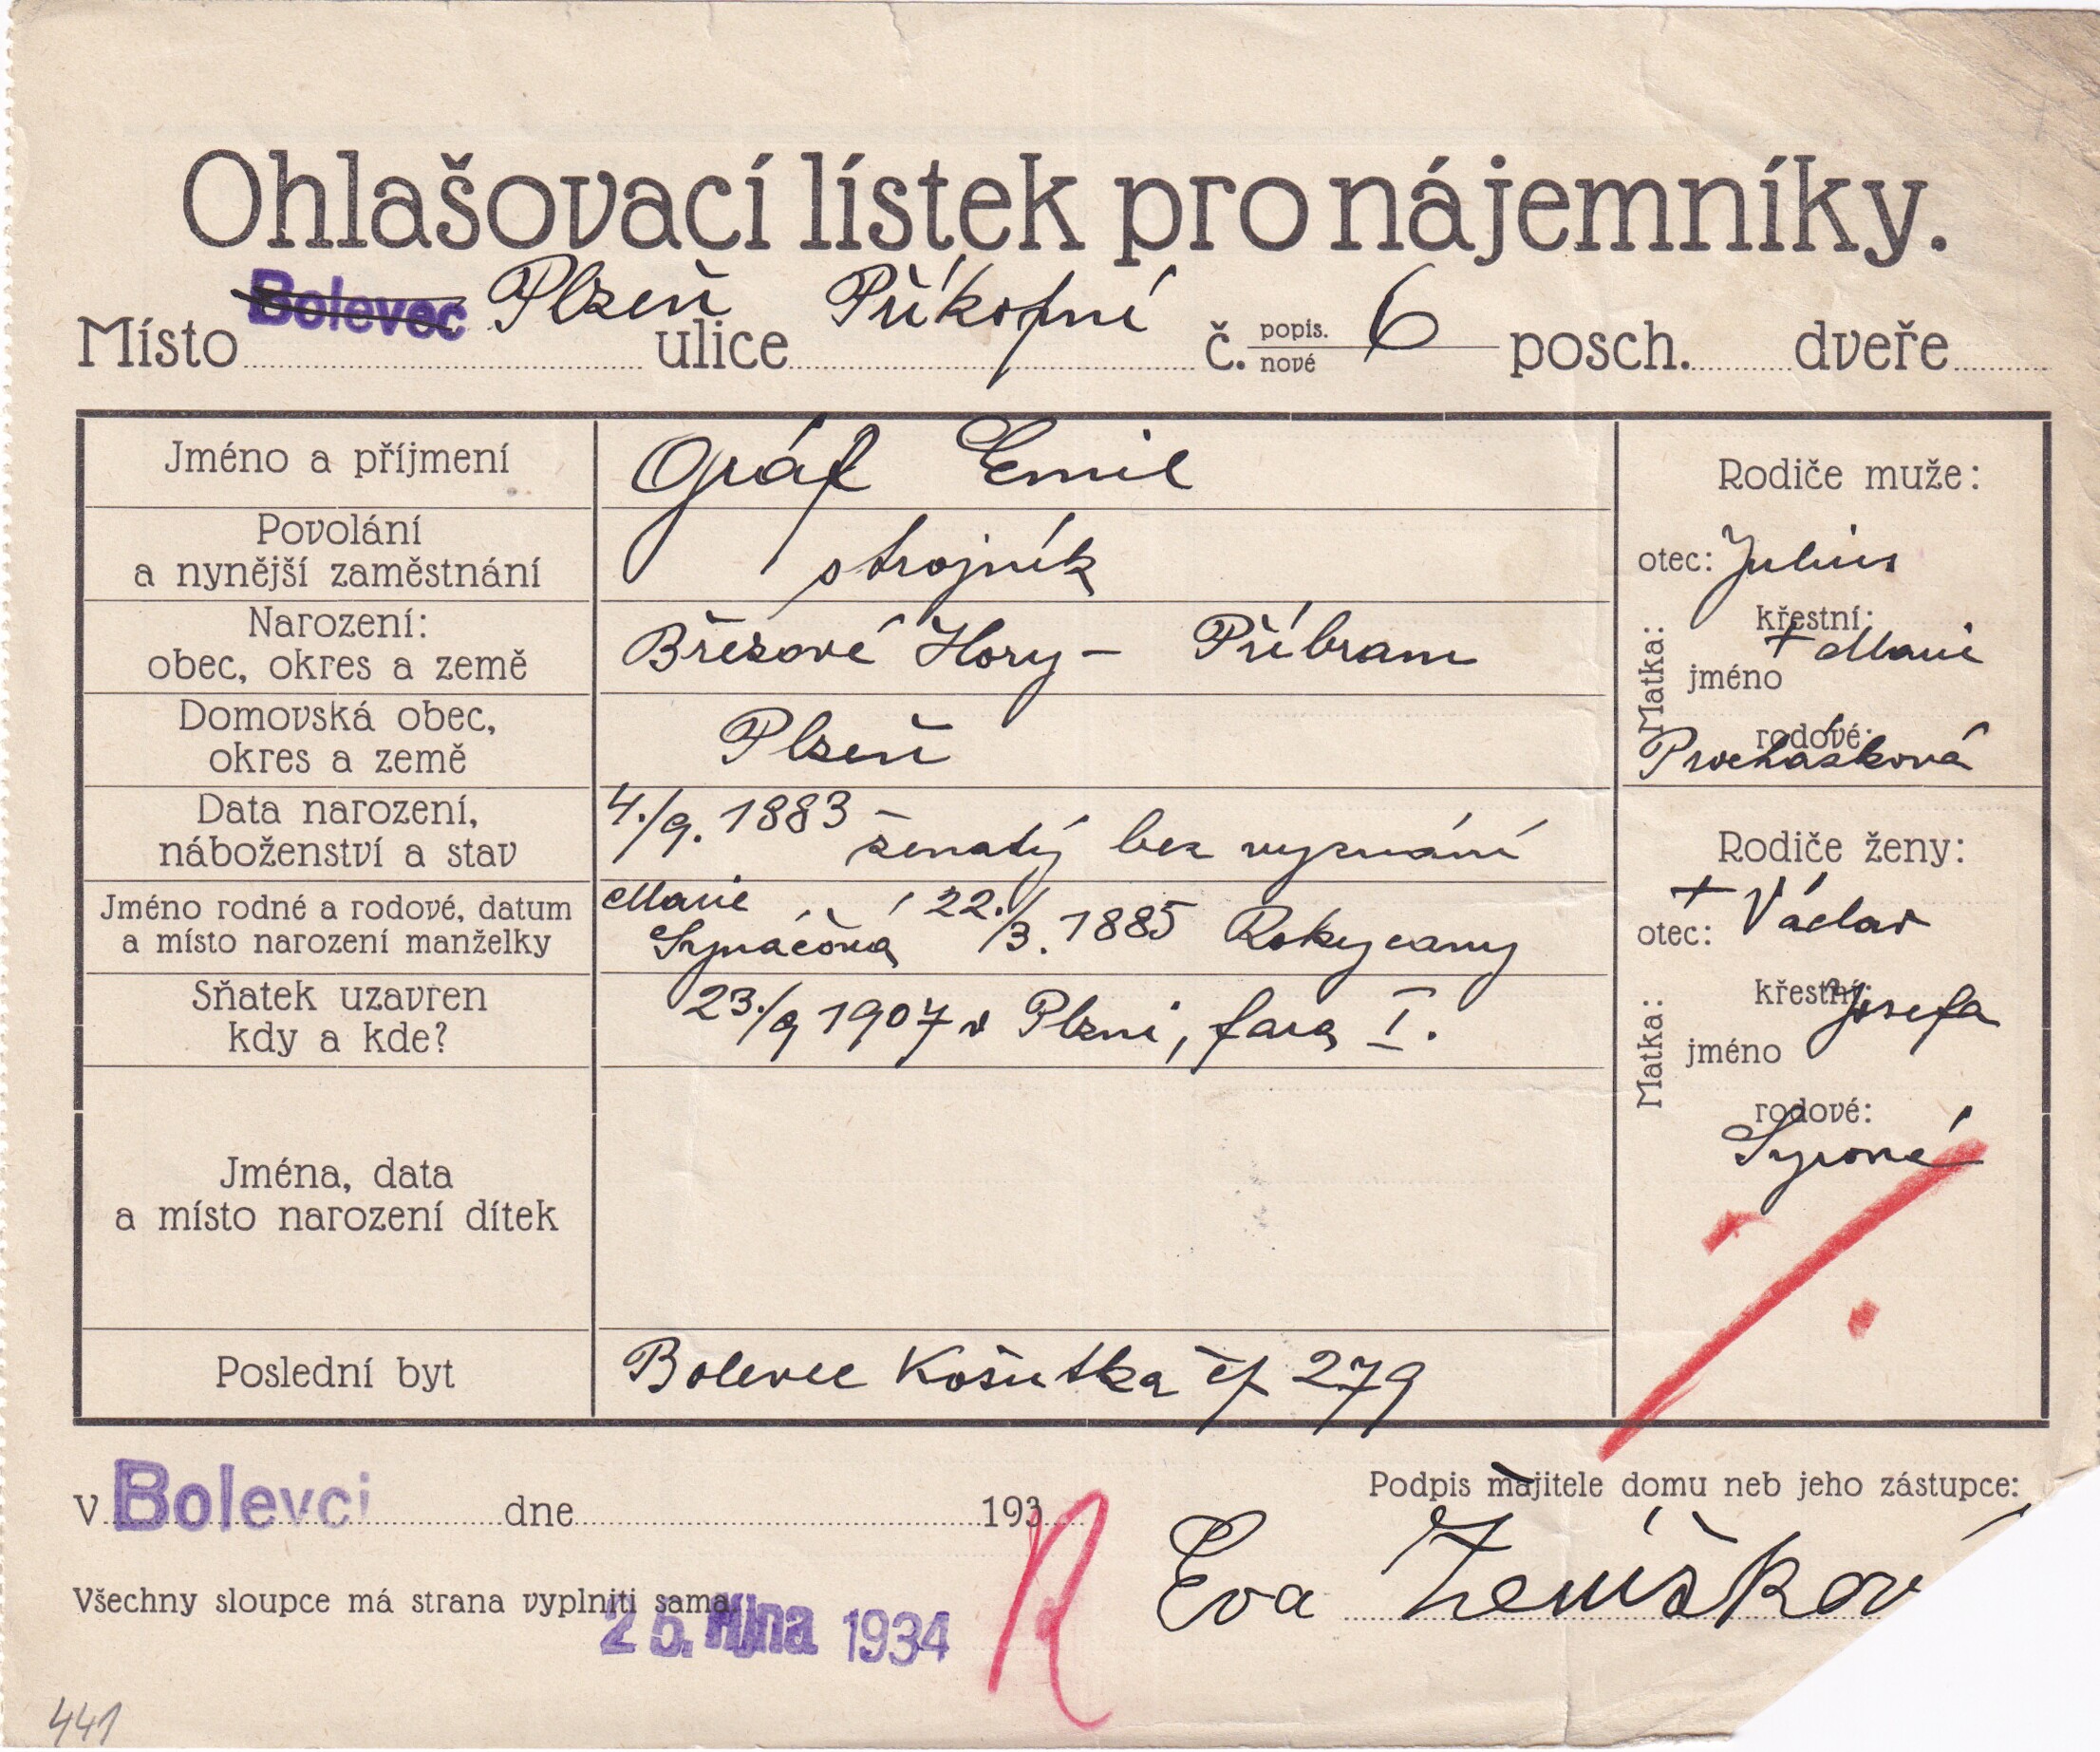 Ohlašovací lístek pro nájemníky.
Místo Bolevec Plzeň ulice Příkopní č. popis. nové 6 posch. dveře
Jméno a příjmení Gráf Emil
Povolání
a nynější zaměstnání strojník
Narození:
obec, okres a země Březové Hory - Příbram
Domovská obec,
okres a země Plzeň
Data narození,
náboženství a stav 4./9. 1883 ženatý bez vyznání
Jméno rodné a rodové, datum
a místo narození manželky Marie
22./3. 1885 Rokycany
Sňatek uzavřen
kdy a kde? 23./9 1907 v Plzni, fara I.
Jména, data
a místo narození dítek
Poslední byt Bolevec Košutka čp 279
Rodiče muže:
otec: Julius
Matka:
křestní:
+ Marie
jméno
rodové:
Procházková
Rodiče ženy:
+ Václav
otec:
Matka:
křestní: Josefa
jméno
rodové:
Syrová
V Bolevci dne 193
Podpis majitele domu neb jeho zástupce:
Eva
Všechny sloupce má strana vyplniti sama.
25. října 1934
441